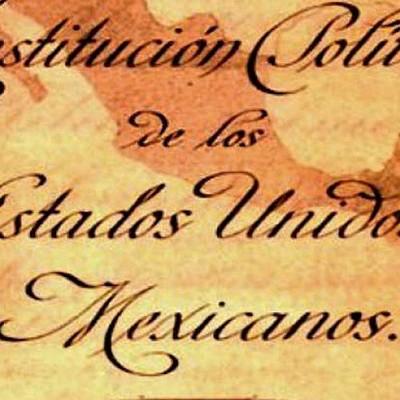 nstitución Polít
de los
Estados Unidos
Mexicanos.